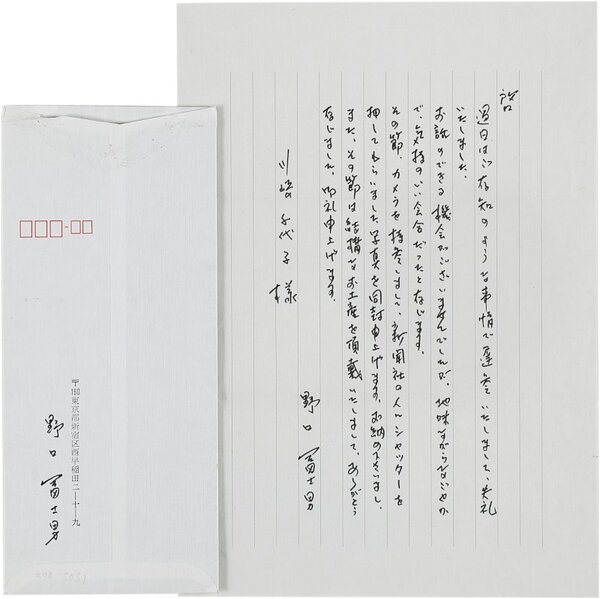 啓
過日は御存知のような事情で遅参いたしまして、失礼
いたしました。
お話のできる機会がございませんでしたが、地味ながらなごやか
で、気持のいい会合だったと存じます。
その節、カメラを持参しまして、新聞社の人にシャッターを
押してもらいました写真を同封申上げます。お納め下さいまし。
また、その節は結構なお土産を頂戴いたしまして、ありがとう
存じました。御礼申上げます。
野口冨士男
川崎千代子様
〒160東京都新宿区西早稲田二ー十ー九
野口冨士男